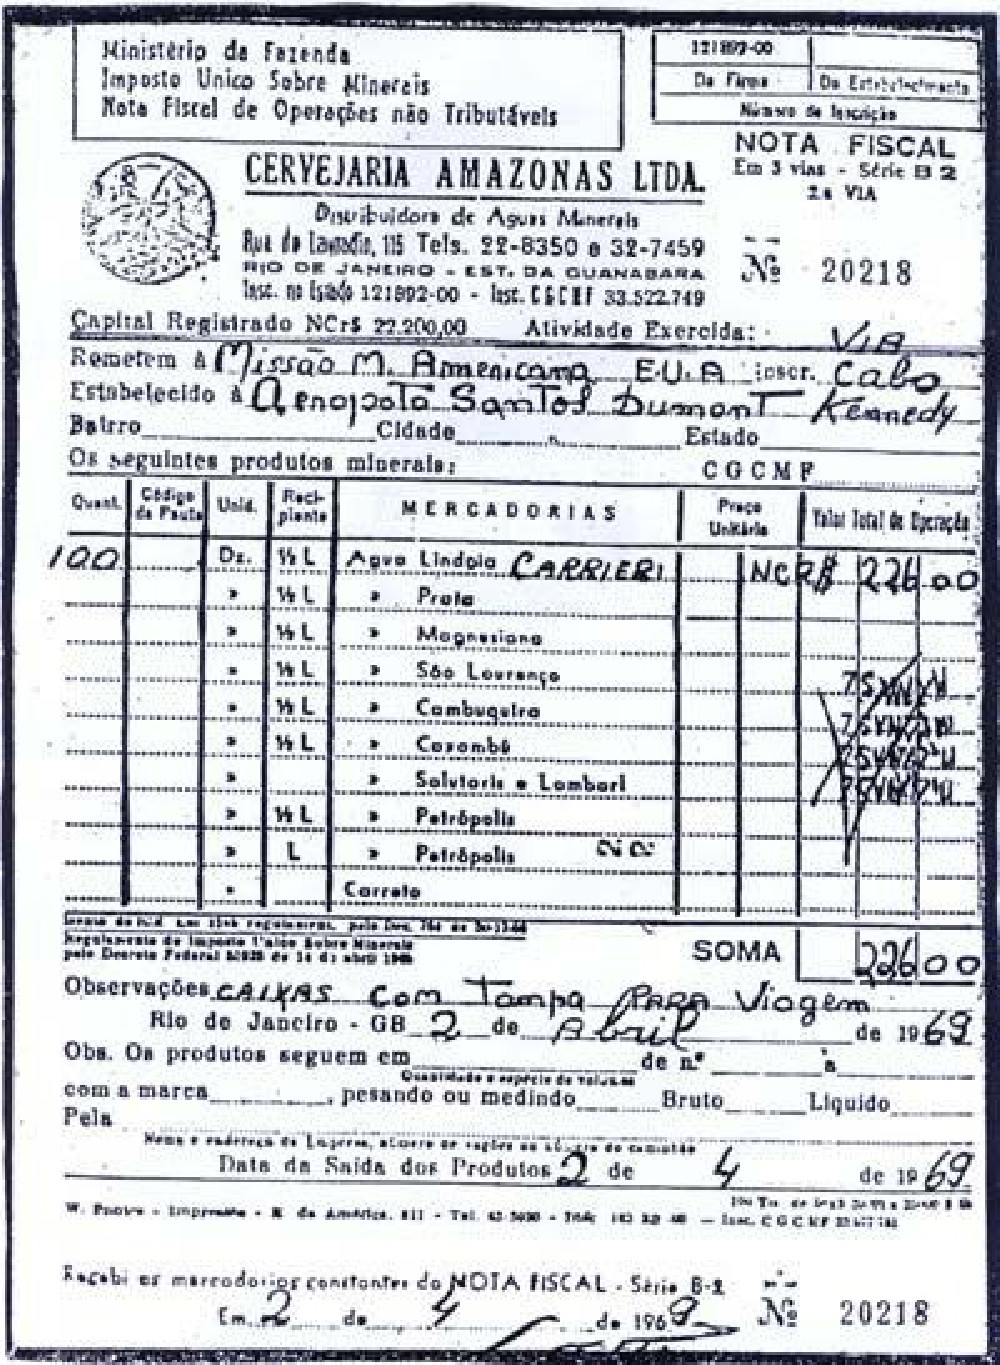 Ministério da Fazenda
Imposto Unico Sobre Minerais
Nota Fiscal de Operações não Tributáveis
121892-00
Da Firma Do Estabelecimento
Número de Inscrição
NOTA FISCAL
Em 3 vias - Série B 2
2a VIA
CERVEJARIA AMAZONAS LTDA.
Distribuidora de Aguas Minerais
Rua do Lavradio, 115 Tels. 22-8350 e 32-7459
RIO DE JANEIRO - EST. DA GUANABARA
Insc. no Estado 121892-00 - Insc. CGCMF 33.522.749
Nº 20218
Capital Registrado NCr$ 22.200,00 Atividade Exercida:
Remetem à Missão M. Americana E.U.A inscr. VIA Cabo
Estabelecido à Aeropoto Santos Dumont Kennedy
Bairro Cidade Estado
Os seguintes produtos minerais: CGCMF
Quant. Código da Pauta Unid. Recipiente MERCADORIAS Preço Unitário Valor Total da Operação
100 Dz. ½ L Agua Lindoia CARRIERI NCR$ 226 00
» ½ L » Prata
» ½ L » Magnesiana
» ½ L » São Lourenço
» ½ L » Cambuquira
» ½ L » Caxambú
» » Salutaris e Lambari
» ½ L » Petrópolis
» L » Petrópolis
» Carreto
Regulamento do Imposto Unico Sobre Minerais
pelo Decreto Federal de 14 de abril
SOMA 226 00
Observações CAIXAS Com Tampa PARA Viagem
Rio de Janeiro - GB 2 de Abril de 1969
Obs. Os produtos seguem em de n.º a
Quantidade e espécie de volumes
com a marca , pesando ou medindo Bruto Liquido
Pela
Data da Saída dos Produtos 2 de 4 de 1969
Recebi as mercadorias constantes da NOTA FISCAL - Série B-2
Em 2 de 4 de 1969 Nº 20218